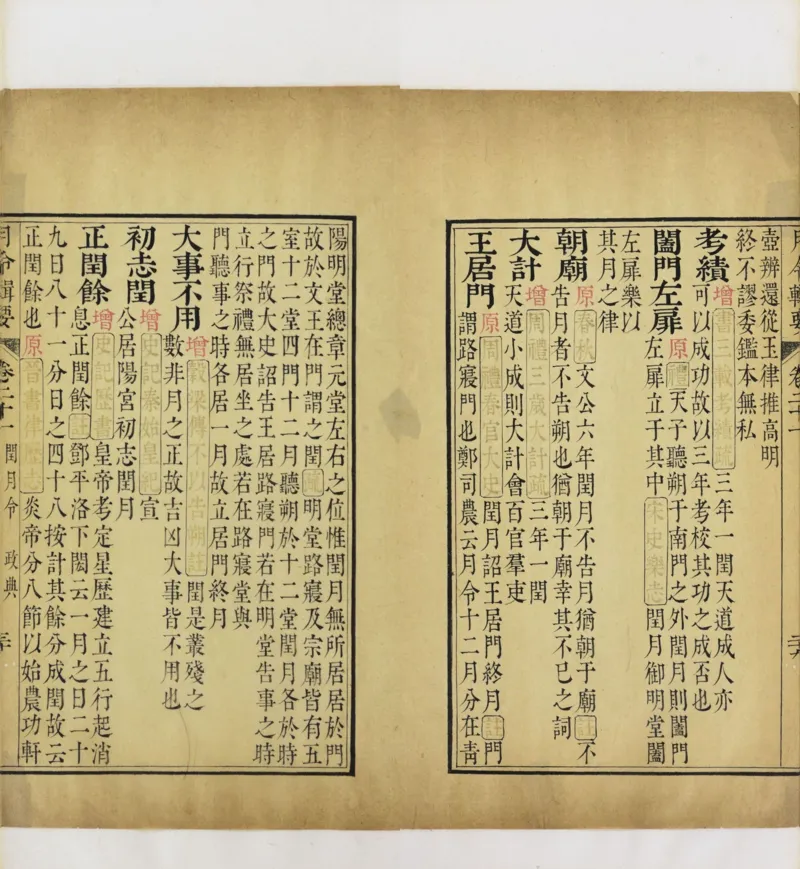 壺辨還從玉律推高明
終不謬委鑑本無私
考績增書三載考績疏三年一閏天道成人亦
可以成功故以三年考校其功之成否也
闔門左扉原禮天子聽朔于南門之外閏月則闔門
左扉立于其中宋史樂志閏月御明堂闔
左扉樂以
其月之律
朝廟原春秋文公六年閏月不告月猶朝于廟註不
告月者不告朔也猶朝于廟幸其不已之詞
大計增周禮三歲大計疏三年一閏
天道小成則大計會百官羣吏
王居門原周禮春官大史閏月詔王居門終月註門
謂路寢門也鄭司農云月令十二月分在青
陽明堂總章元堂左右之位惟閏月無所居居於門
故於文王在門謂之閏疏明堂路寢及宗廟皆有五
室十二堂四門十二月聽朔於十二堂閏月各於時
之門故大史詔告王居路寢門若在明堂告事之時
立行祭禮無居坐之處若在路寢堂與
門聽事之時各居一月故立居門終月
大事不用增穀梁傳不以告朔註閏是叢殘之
數非月之正故吉凶大事皆不用也
初志閏增史記秦始皇紀宣
公居陽宮初志閏月
正閏餘增史記歷書皇帝考定星歷建立五行起消
息正閏餘註鄧平洛下閎云一月之日二十
九日八十一分日之四十八按計其餘分成閏故云
正閏餘也原晉書律歷志炎帝分八節以始農功軒
月令輯要 卷二十一 閏月令 政典